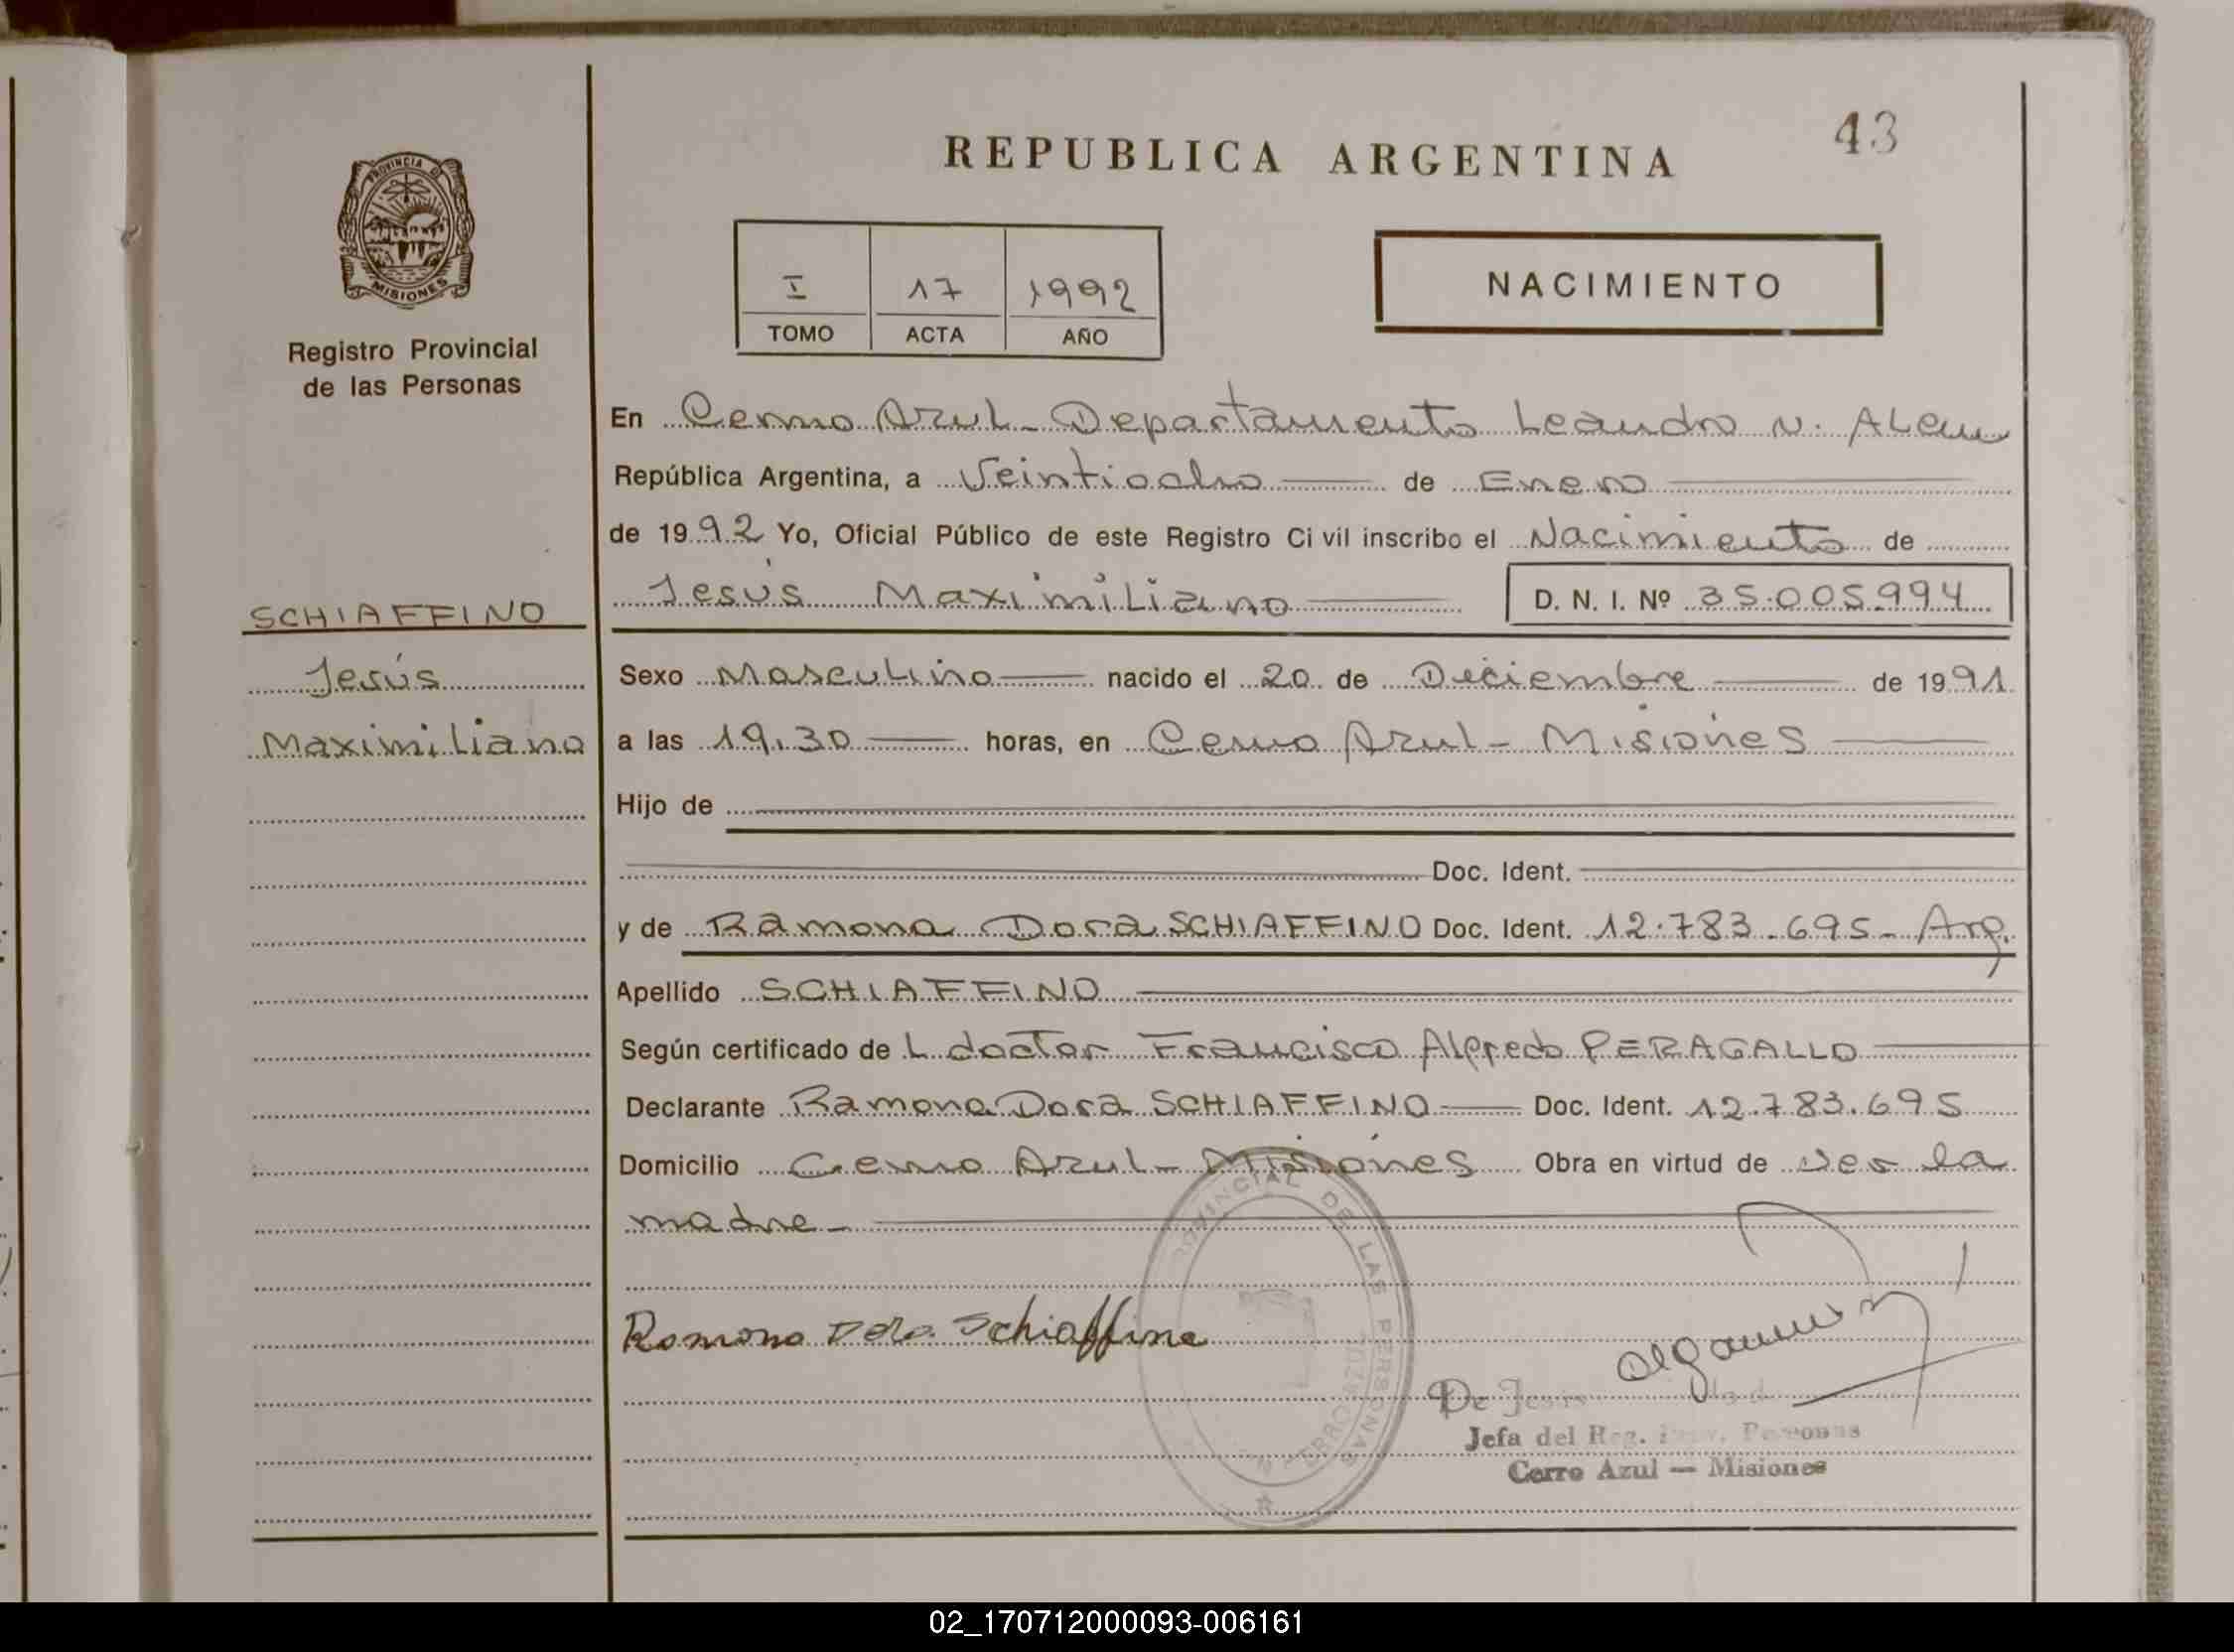 43
REPUBLICA ARGENTINA
PROVINCIA DE
MISIONES
Registro Provincial
de las Personas
I 17 1992
TOMO ACTA AÑO
NACIMIENTO
En Cerro Azul - Departamento Leandro N. Alem
República Argentina, a Veintiocho de Enero
de 1992 Yo, Oficial Público de este Registro Civil inscribo el Nacimiento de
Jesús Maximiliano D. N. I. Nº 35.005.994
SCHIAFFINO
Jesús
Maximiliano
Sexo Masculino nacido el 20 de Diciembre de 1991
a las 19,30 horas, en Cerro Azul - Misiones
Hijo de
Doc. Ident.
y de Ramona Dora SCHIAFFINO Doc. Ident. 12.783.695 - Arg.
Apellido SCHIAFFINO
Según certificado del doctor Francisco Alfredo PERAGALLO
Declarante Ramona Dora SCHIAFFINO Doc. Ident. 12.783.695
Domicilio Cerro Azul - Misiones Obra en virtud de ser la
madre -
PROVINCIAL DE LAS PERSONAS
Ramona Dora Schiaffino
De Jesús
Jefa del Reg. Prov. Personas
Cerro Azul — Misiones
02_170712000093-006161